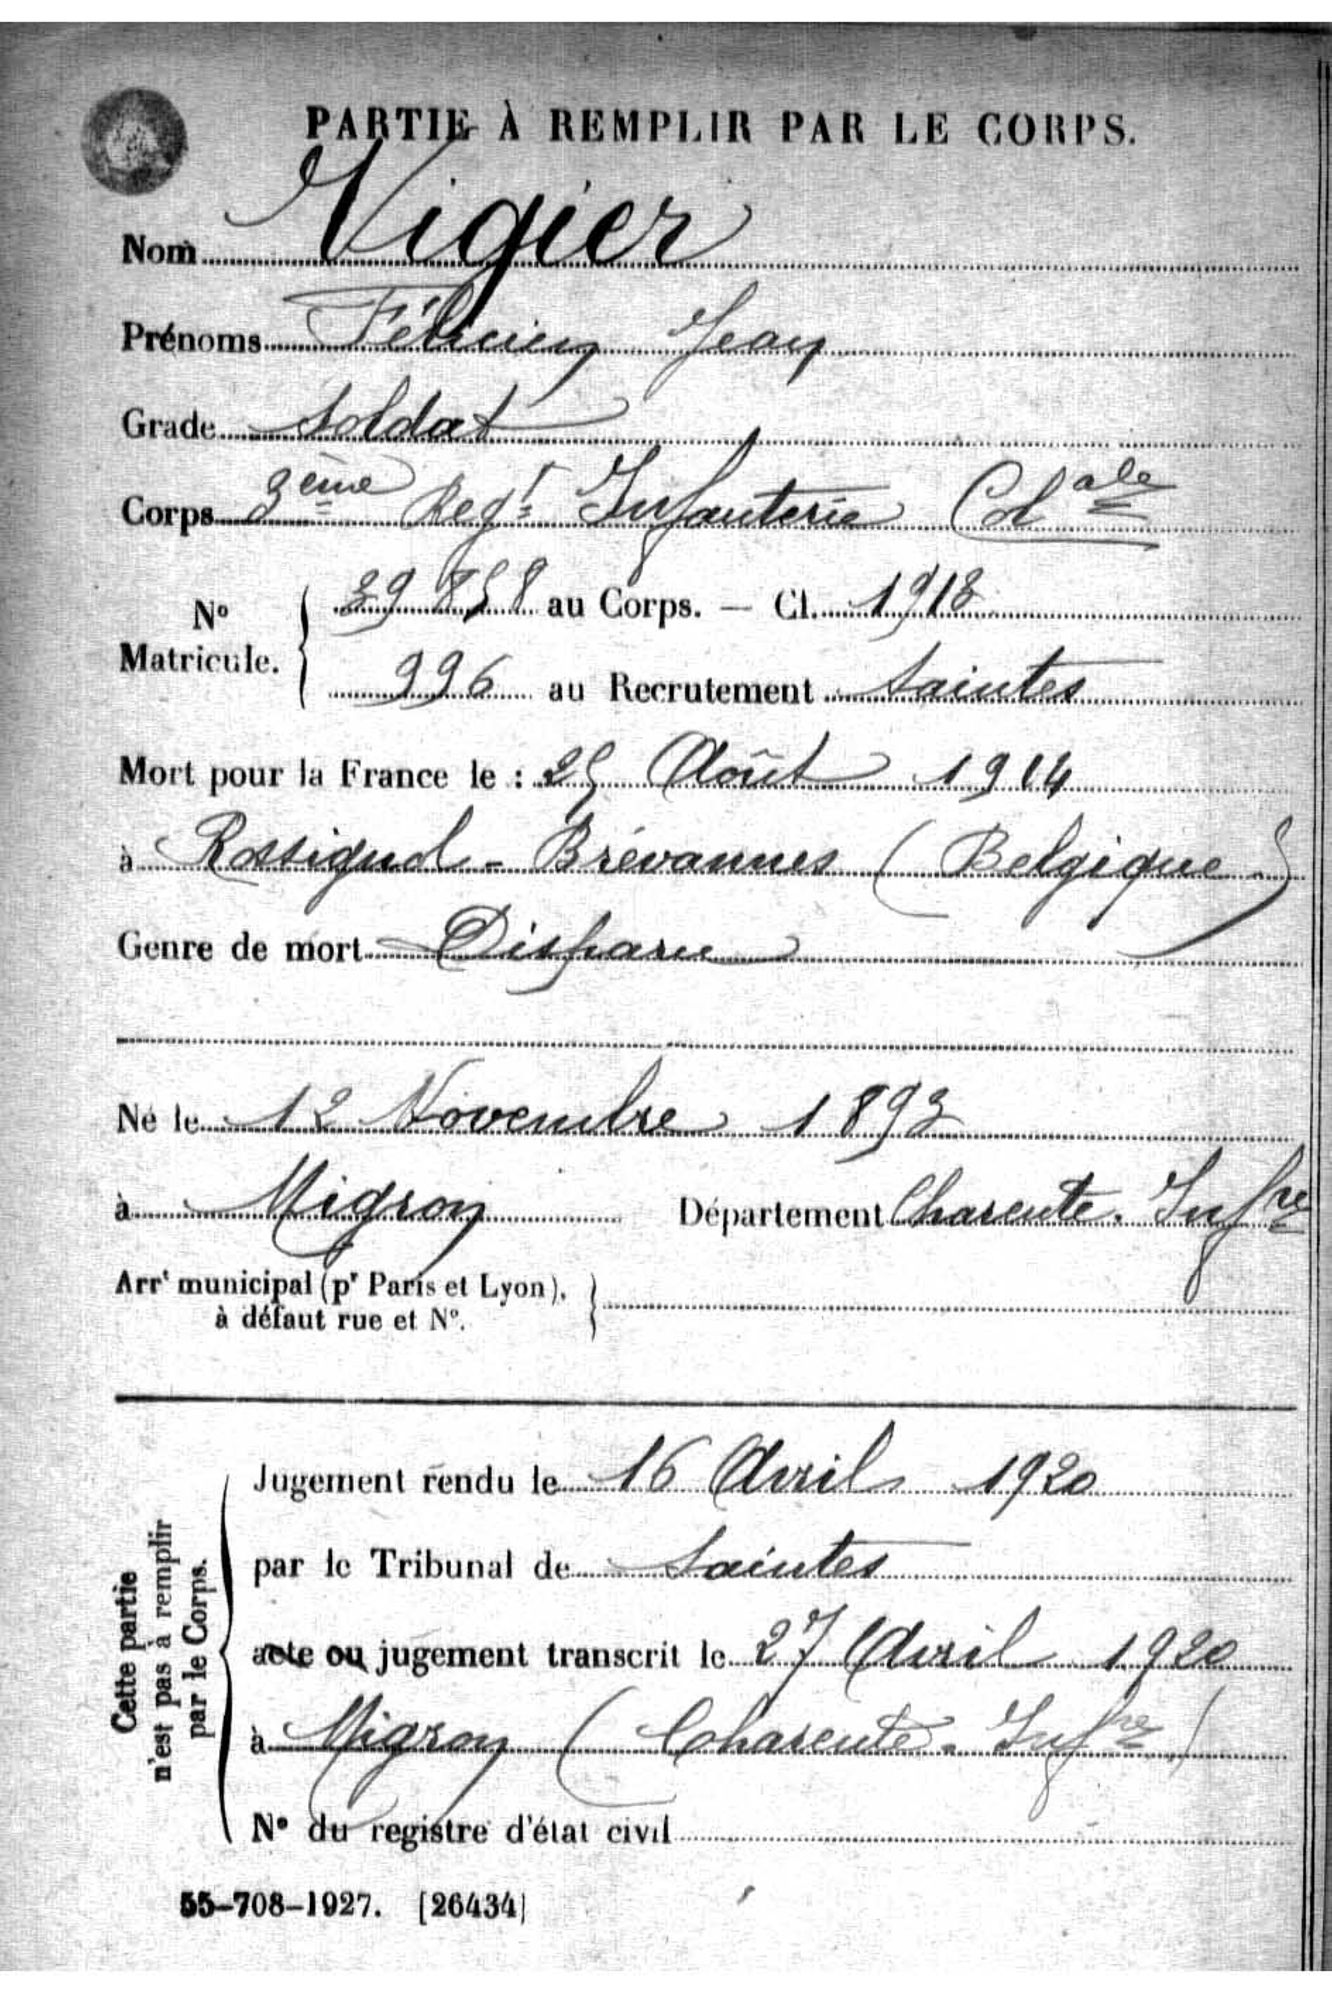 PARTIE À REMPLIR PAR LE CORPS.
Nom Vigier
Prénoms Félicien Jean
Grade Soldat
Corps 3ème Regt Infanterie Colale
No Matricule. 39858 au Corps. — Cl. 1913
996 au Recrutement Saintes
Mort pour la France le : 25 Août 1914
à Rossignol - Brévannes (Belgique)
Genre de mort Disparu
Né le 12 Novembre 1893
à Migron Département Charente-Infre
Arrt municipal (pr Paris et Lyon),
à défaut rue et No.
Cette partie
n'est pas à remplir
par le Corps.
Jugement rendu le 16 Avril 1920
par le Tribunal de Saintes
acte ou jugement transcrit le 27 Avril 1920
à Migron (Charente-Infre)
No du registre d'état civil
55-708-1927. [26434]